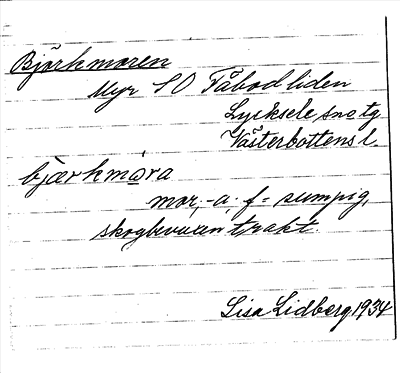 Björkmoren
Myr SO Fäbodliden
Lycksele sn o tg
Västerbottens l.
bjærkmora
mor, -a, f = sumpig,
skogbevuxen trakt.
Lisa Lidberg 1934